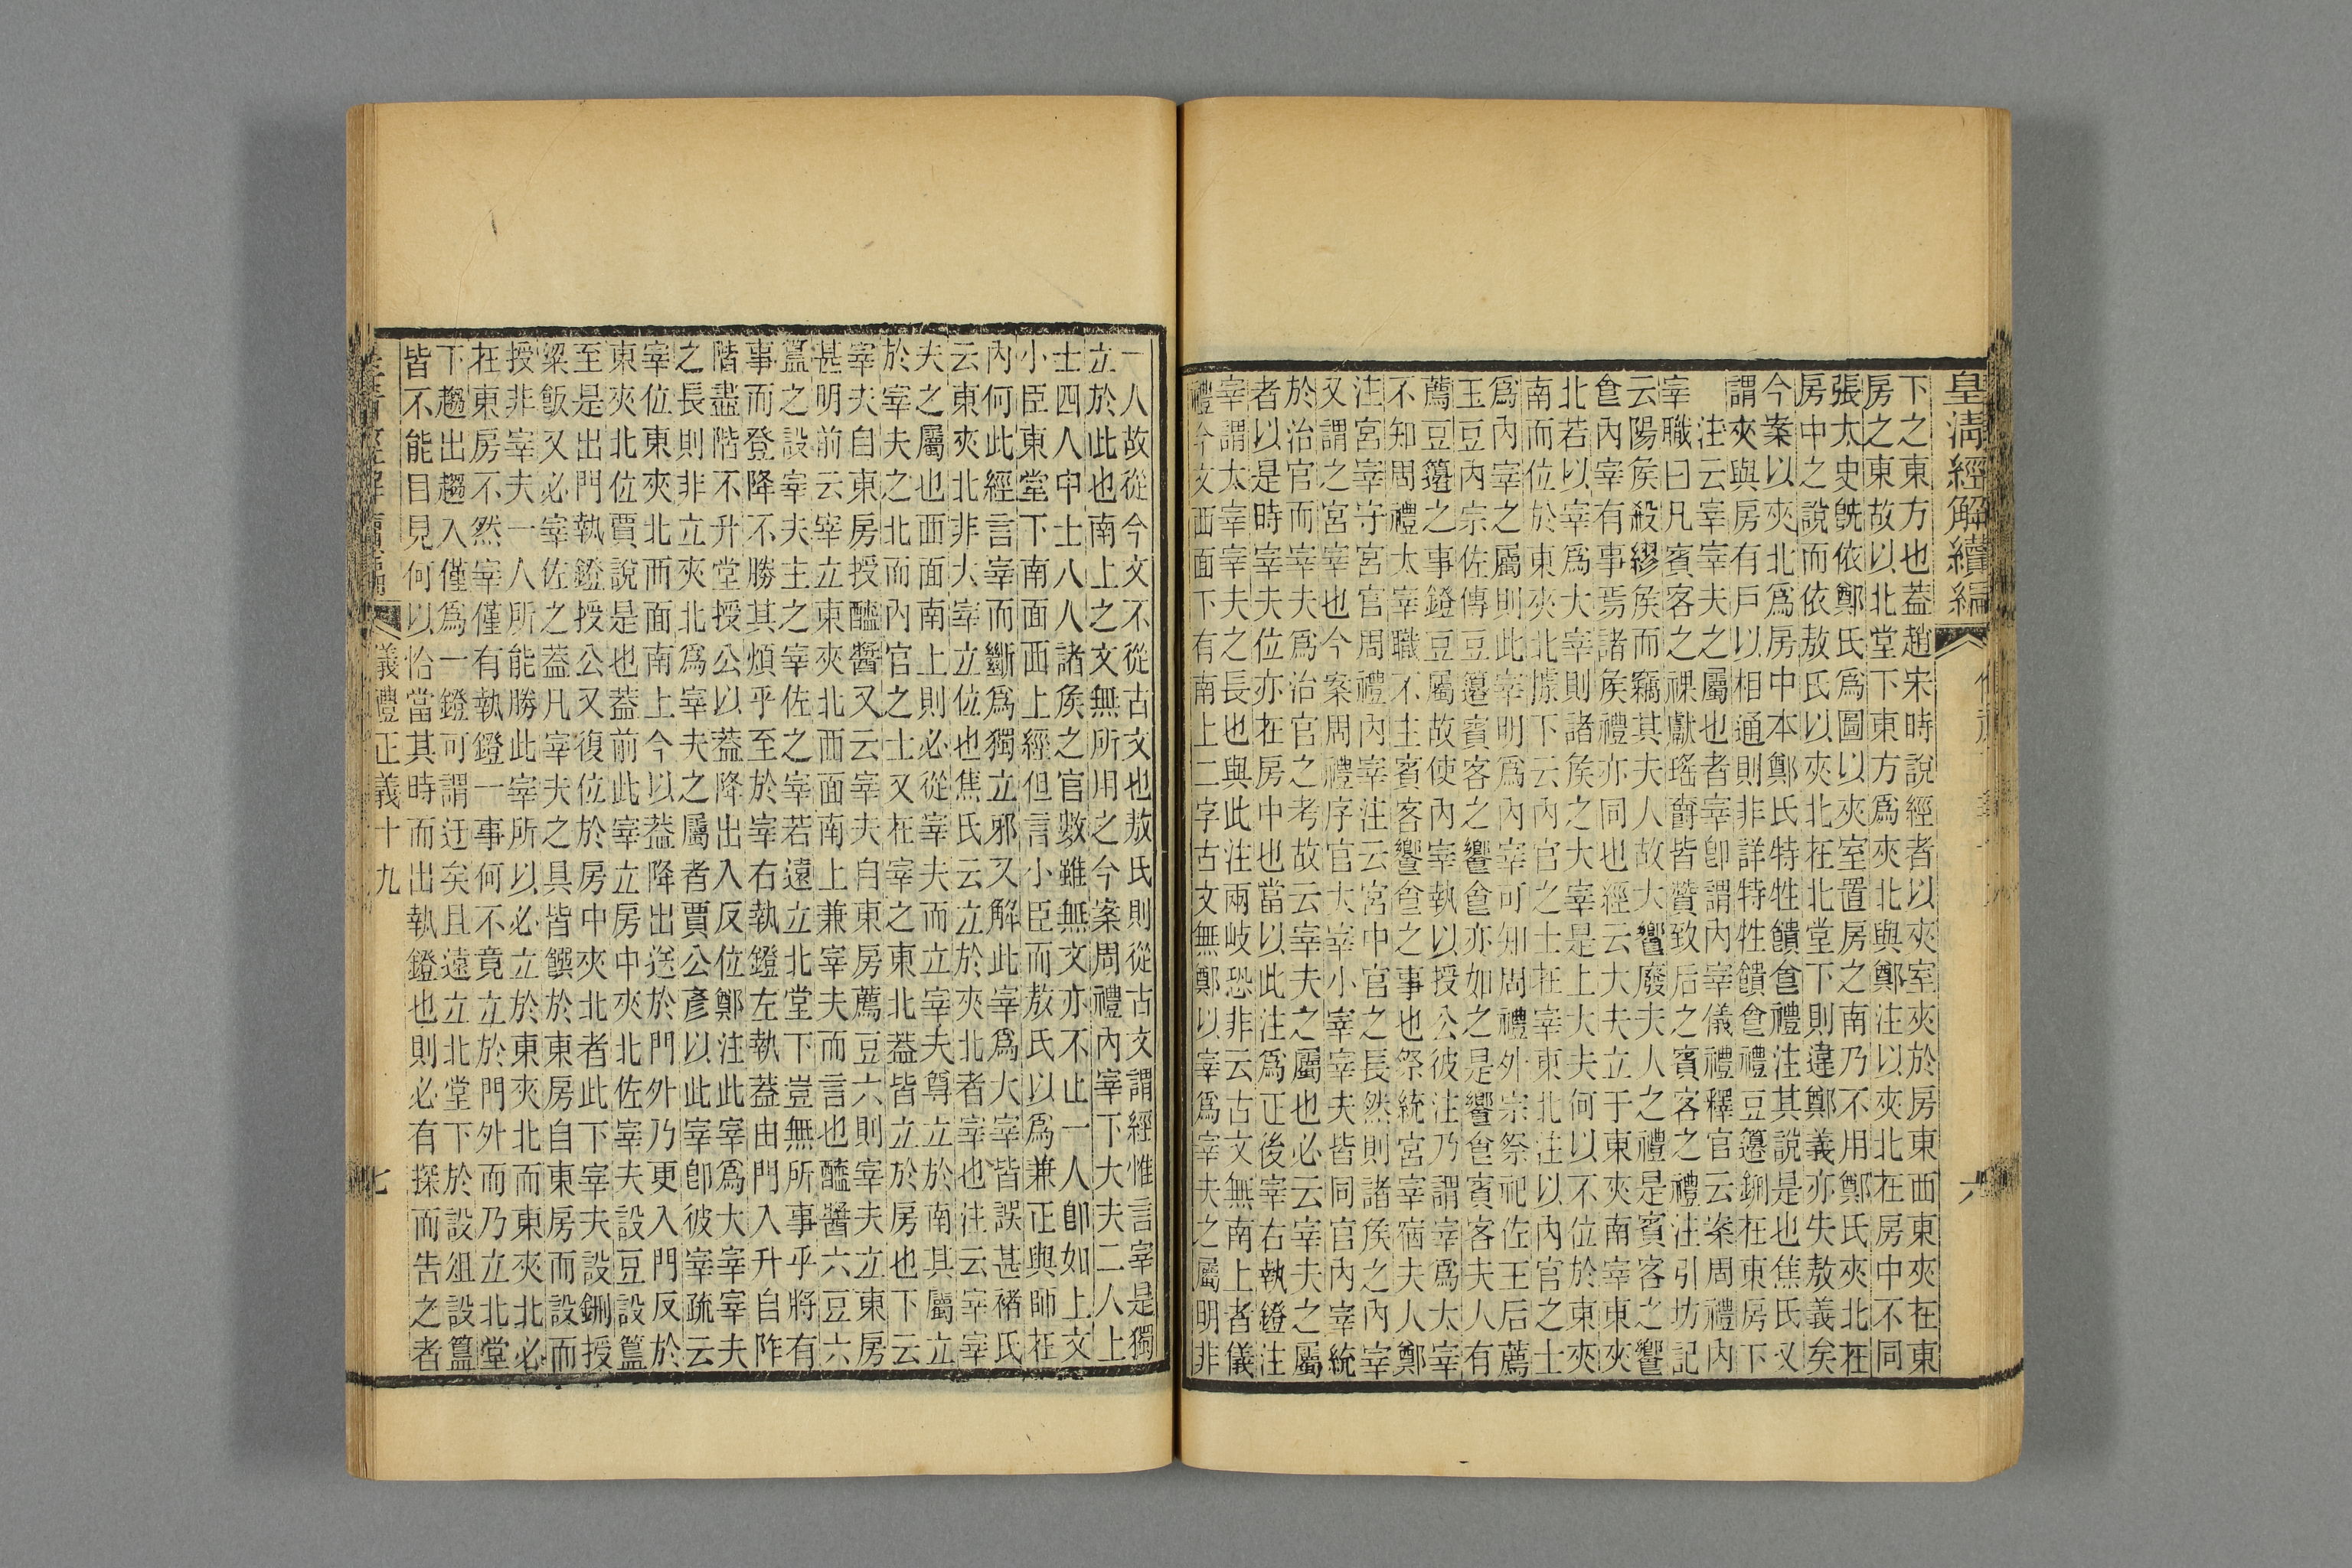 皇清經解續編
六
下之東方也蓋趙宋時說經者以夾室夾於房東西東夾在東
房之東故以北堂下東方爲夾北與鄭注以夾北在房中不同
張太史旣依鄭氏爲圖以夾室置房之南乃不用鄭氏夾北在
房中之說而依敖氏以夾北在北堂下則違鄭義亦失敖義矣
今案以夾北爲房中本鄭氏特牲饋食禮注其說是也焦氏又
謂夾與房有戸以相通則非詳特牲饋食禮豆籩鉶在東房下
注云宰宰夫之屬也者宰卽謂內宰儀禮釋官云案周禮內
宰職曰凡賓客之祼獻瑤爵皆贊致后之賓客之禮注引坊記
云陽矦殺繆矦而竊其夫人故大饗廢夫人之禮是賓客之饗
食內宰有事焉諸矦禮亦同也經云大夫立于東夾南宰東夾
北若以宰爲大宰則諸矦之大宰是上大夫何以不位於東夾
南而位於東夾北據下云內官之士在宰東北注以內官之士
爲內宰之屬則此宰明爲內宰可知周禮外宗祭祀佐王后薦
玉豆內宗佐傳豆籩賓客之饗食亦如之是饗食賓客夫人有
薦豆籩之事鐙豆屬故使內宰執以授公彼注乃謂宰爲大宰
不知周禮大宰職不主賓客饗食之事也祭統宮宰宿夫人鄭
注宮宰守宮官周禮內宰注云宮中官之長然則諸矦之內宰
又謂之宮宰也今案周禮序官大宰小宰宰夫皆同官內宰統
於治官而宰夫爲治官之考故云宰夫之屬也必云宰夫之屬
者以是時宰夫位亦在房中也當以此注爲正後宰右執鐙注
宰謂太宰宰夫之長也與此注兩岐恐非云古文無南上者儀
禮今文西面下有南上二字古文無鄭以宰爲宰夫之屬明非
一人故從今文不從古文也敖氏則從古文謂經惟言宰是獨
立於此也南上之文無所用之今案周禮內宰下大夫二人上
士四人中士八人諸矦之官數雖無文亦不止一人卽如上文
小臣東堂下南面西上經但言小臣而敖氏以爲兼正與師在
內何此經言宰而斷爲獨立邪又解此宰爲大宰皆誤甚褚氏
云東夾北非大宰立位也焦氏云立於夾北者宰也注云宰宰
夫之屬也西面南上則必從宰夫而立宰夫尊立於南其屬立
於宰夫之北而內官之士又在宰之東北蓋皆立於房也下云
宰夫自東房授醯醬又云宰夫自東房薦豆六則宰夫立東房
甚明前云宰立東夾北西面南上兼宰夫而言也醯醬六豆六
簋之設宰夫主之宰佐之宰若遠立北堂下豈無所事乎將有
事而登降不勝其煩乎至於宰右執鐙左執蓋由門入升自阼
階盡階不升堂授公以蓋降出入反位鄭注此宰爲大宰宰夫
之長則非立夾北爲宰夫之屬者賈公彥以此宰卽彼宰疏云
宰位東夾北西面南上今以蓋降出送於門外乃更入門反於
東夾北位賈說是也蓋前此宰立房中夾北佐宰夫設豆設簋
至是出門執鐙授公又復位於房中夾北者此下宰夫設鉶授
粱飯又必宰佐之蓋凡宰夫之具皆饌於東房自東房而設而
授非宰夫一人所能勝此宰所以必立於東夾北而東夾北必
在東房不然宰僅有執鐙一事何不竟立於門外而乃立北堂
下趨出趨入僅爲一鐙可謂迂矣且遠立北堂下於設俎設簋
皆不能目見何以恰當其時而出執鐙也則必有探而告之者
禮正義十九
七